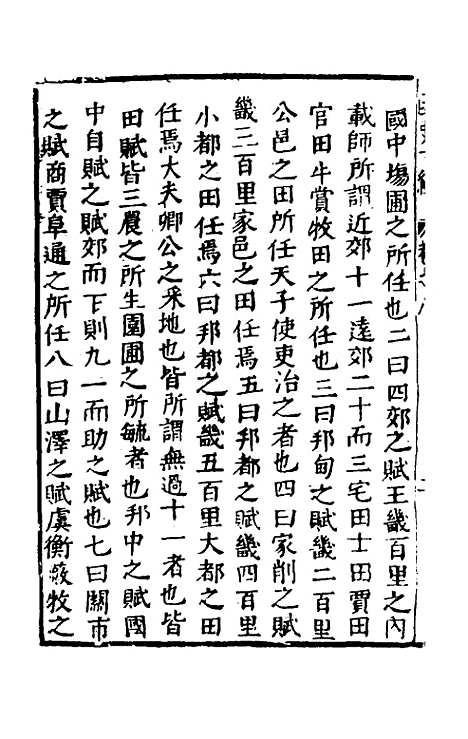 國中塲圃之所任也二曰四郊之賦王畿百里之內
載師所謂近郊十一遠郊二十而三宅田士田賈田
官田牛賞牧田之所任也三曰邦甸之賦畿二百里
公邑之田所任天子使吏治之者也四曰家削之賦
畿三百里家邑之田任焉五曰邦都之賦畿四百里
小都之田任焉六曰邦都之賦畿五百里大都之田
任焉大夫卿公之采地也皆所謂無過十一者也皆
田賦皆三農之所生園圃之所毓者也邦中之賦國
中自賦之賦郊而下則九一而助之賦也七曰關市
之賦商賈阜通之所任八曰山澤之賦虞衡藪牧之